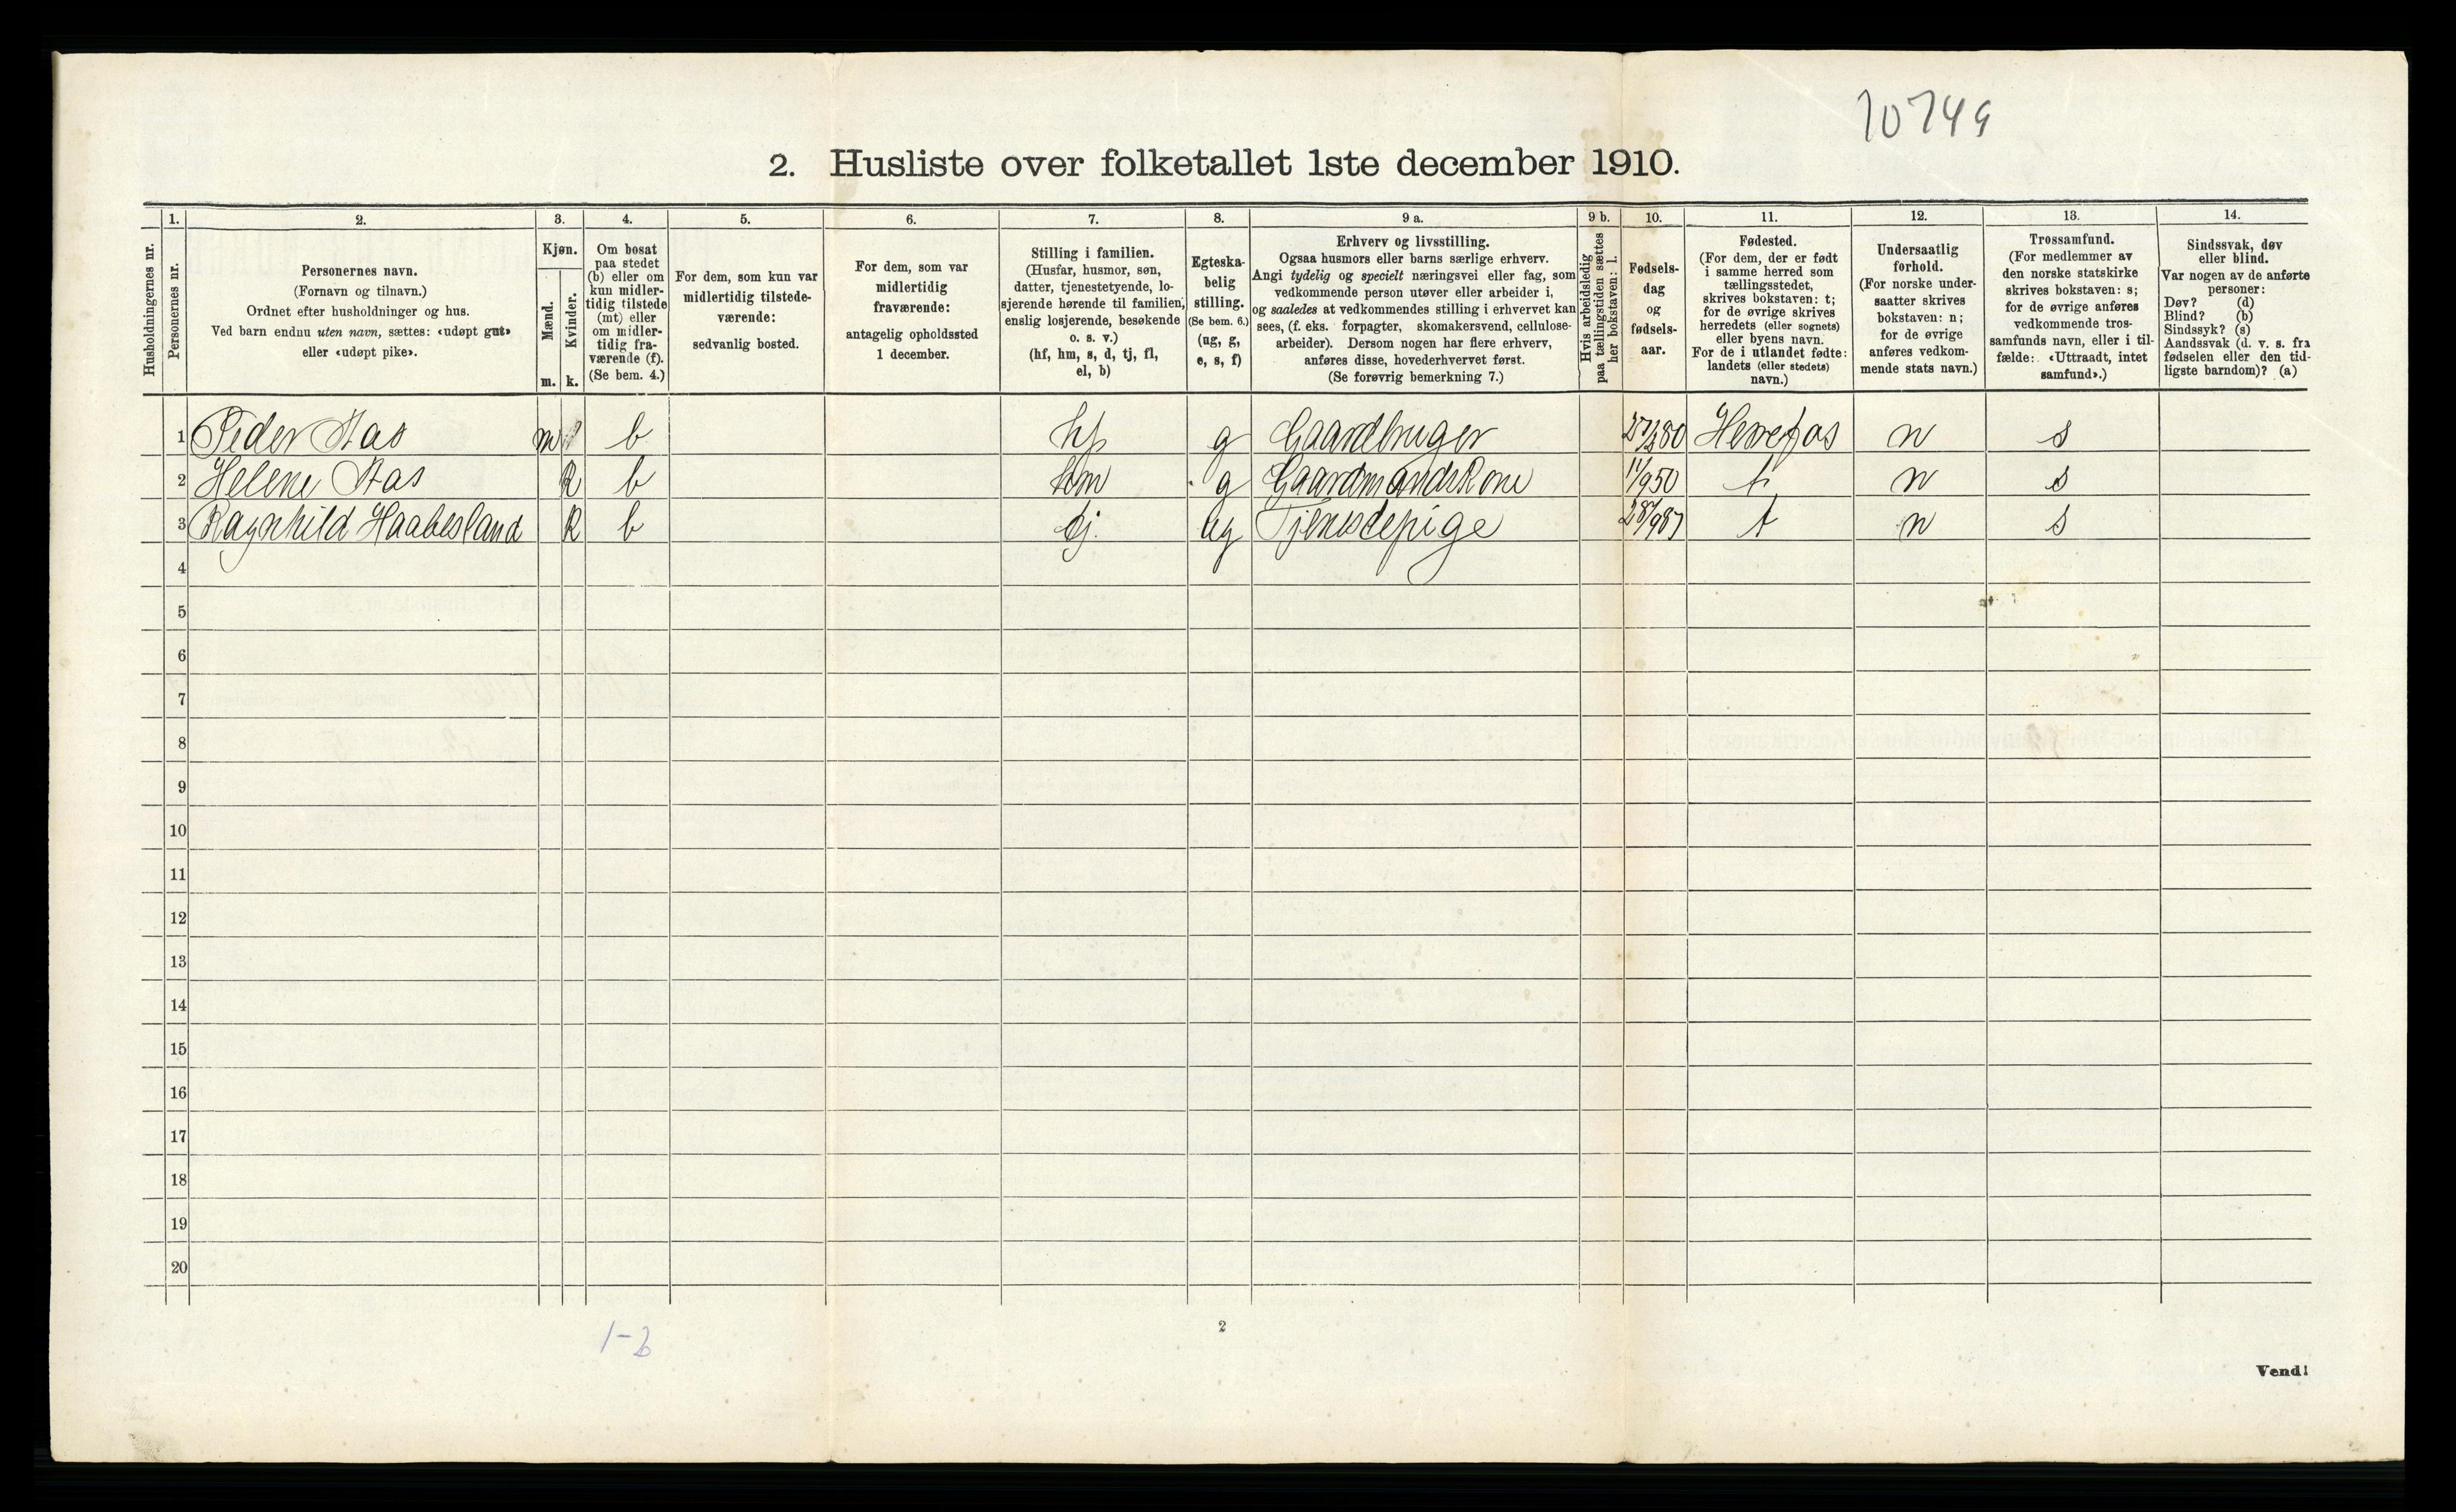 10749
2. Husliste over folketallet 1ste december 1910.
1. 2. 3. 4. 5. 6. 7. 8. 9 a. 9 b. 10. 11. 12. 13. 14.
Husholdningernes nr.
Personernes nr.
Personernes navn.
(Fornavn og tilnavn.)
Ordnet efter husholdninger og hus.
Ved barn endnu uten navn, sættes: «udøpt gut»
eller «udøpt pike».
Kjøn.
Mænd.
Kvinder.
m. k.
Om bosat
paa stedet
(b) eller om
kun midler-
tidig tilstede
(mt) eller
om midler-
tidig fra-
værende (f).
(Se bem. 4.)
For dem, som kun var
midlertidig tilstede-
værende:
sedvanlig bosted.
For dem, som var
midlertidig
fraværende:
antagelig opholdssted
1 december.
Stilling i familien.
(Husfar, husmor, søn,
datter, tjenestetyende, lo-
sjerende hørende til familien,
enslig losjerende, besøkende
o. s. v.)
(hf, hm, s, d, tj, fl,
el, b)
Egteska-
belig
stilling.
(Se bem. 6.)
(ug, g,
e, s, f)
Erhverv og livsstilling.
Ogsaa husmors eller barns særlige erhverv.
Angi tydelig og specielt næringsvei eller fag, som
vedkommende person utøver eller arbeider i,
og saaledes at vedkommendes stilling i erhvervet kan
sees, (f. eks. forpagter, skomakersvend, cellulose-
arbeider). Dersom nogen har flere erhverv,
anføres disse, hovederhvervet først.
(Se forøvrig bemerkning 7.)
Hvis arbeidsledig
paa tællingstiden sættes
her bokstaven: l.
Fødsels-
dag
og
fødsels-
aar.
Fødested.
(For dem, der er født
i samme herred som
tællingsstedet,
skrives bokstaven: t;
for de øvrige skrives
herredets (eller sognets)
eller byens navn.
For de i utlandet fødte:
landets (eller stedets)
navn.)
Undersaatlig
forhold.
(For norske under-
saatter skrives
bokstaven: n;
for de øvrige
anføres vedkom-
mende stats navn.)
Trossamfund.
(For medlemmer av
den norske statskirke
skrives bokstaven: s;
for de øvrige anføres
vedkommende tros-
samfunds navn, eller i til-
fælde: «Uttraadt, intet
samfund».)
Sindssvak, døv
eller blind.
Var nogen av de anførte
personer:
Døv? (d)
Blind? (b)
Sindssyk? (s)
Aandssvak (d. v. s. fra
fødselen eller den tid-
ligste barndom)? (a)
1 Peder Aas m b hf g Gaardbruger Herefos n s
2 Helene Aas k b hm g Gaardmandskone 11/9 50 t n s
3 Ragnhild Haabesland k b tj. ug Tjenestepige 28/9 87 t n s
4
5
6
7
8
9
10
11
12
13
14
15
16
17
18
19
20
1-2
2
Vend!